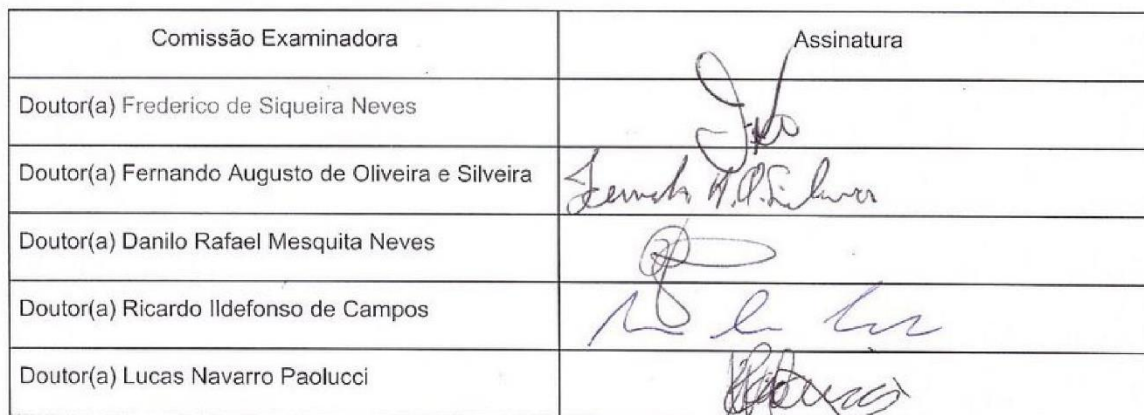 Comissão Examinadora Assinatura
Doutor(a) Frederico de Siqueira Neves
Doutor(a) Fernando Augusto de Oliveira e Silveira Fernando A.O.Silveira
Doutor(a) Danilo Rafael Mesquita Neves
Doutor(a) Ricardo Ildefonso de Campos
Doutor(a) Lucas Navarro Paolucci